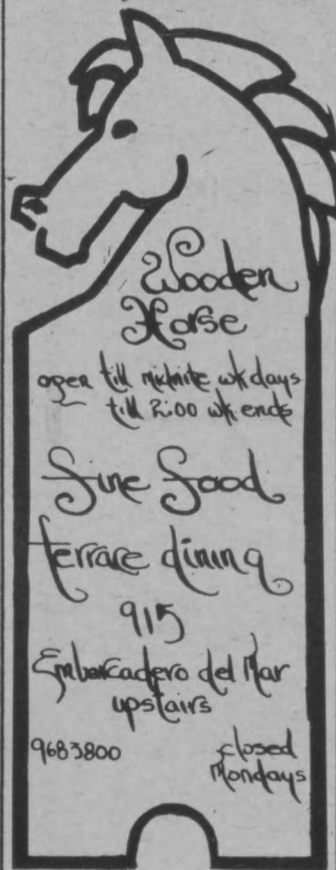 Wooden
Horse
open till midnite wk days
till 2:00 wk ends
fine food
terrace dining
915
Embarcadero del Mar
upstairs
9683800
closed
Mondays